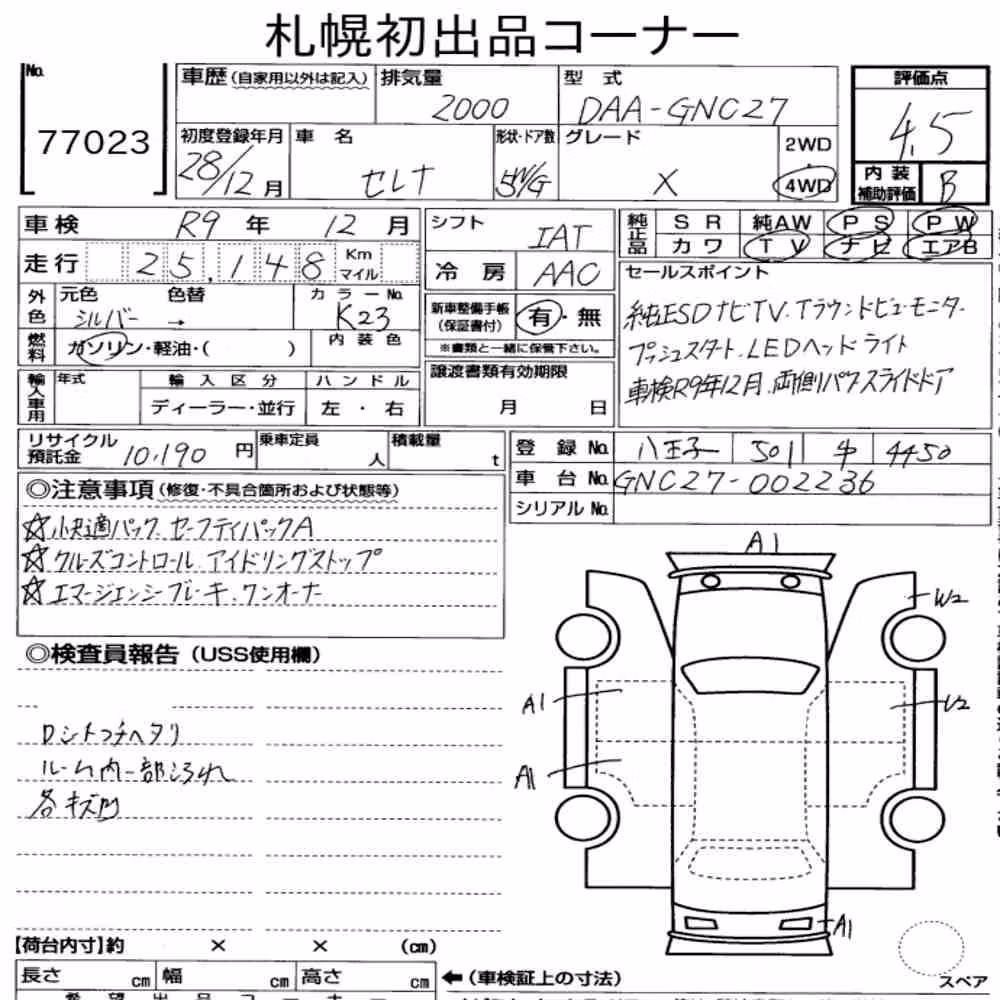 札幌初出品コーナー
No. 77023
車歴(自家用以外は記入) 排気量 2000 型式 DAA-GNC27
初度登録年月 28/12月 車名 セレナ 形状・ドア数 5W/G グレード X 2WD 4WD
評価点 4.5
内装補助評価 B
車検 R9年 12月
走行 25,148 Km マイル
外色 元色 シルバー 色替 → カラーNo. K23
燃料 ガソリン・軽油・( ) 内装色
輸入車用 年式 輸入区分 ディーラー・並行 ハンドル 左・右
シフト IAT
冷房 AAC
新車整備手帳(保証書付) 有・無
※書類と一緒に保管下さい。
譲渡書類有効期限
月 日
純正品 SR 純AW PS PW
カワ TV ナビ エアB
セールスポイント
純正SDナビTV.アラウンドビューモニター
プッシュスタート.LEDヘッドライト
車検R9年12月.両側パワスライドドア
リサイクル預託金 10,190円 乗車定員 人 積載量 t
登録No. 八王子 501 4450
車台No. GNC27-002236
シリアルNo.
◎注意事項(修復・不具合箇所および状態等)
☆快適パック.セーフティパックA
☆クルーズコントロール.アイドリングストップ
☆エマージェンシーブレーキ.ワンオーナー
◎検査員報告(USS使用欄)
Dシートコゲヘタリ
ルーム内一部汚れ
各キズ凹
A1
W2
A1
U2
A1
A1
スペア
【荷台内寸】約 × × (cm)
長さ cm 幅 cm 高さ cm
←(車検証上の寸法)